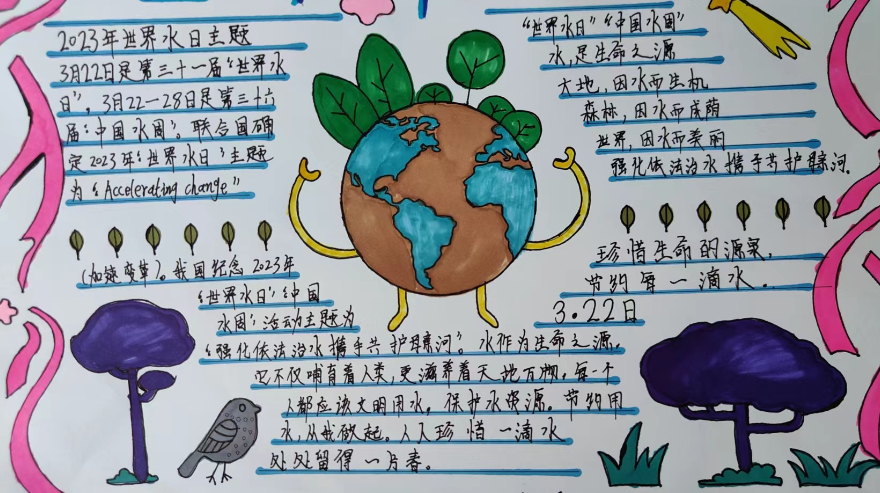 2023年世界水日主题
3月22日是第三十一届"世界水
日",3月22—28日是第三十六
届:中国水周"。联合国确
定2023年"世界水日"主题
为"Accelerating change"
(加速变革)。我国纪念2023年
"世界水日""中国
水周"活动主题为
"强化依法治水 携手共护母亲河"。水作为生命之源,
它不仅哺育着人类,更滋养着天地万物,每一个
人都应该文明用水,保护水资源。节约用
水,从我做起。人人珍惜一滴水
处处留得一片春。
"世界水日""中国水周"
水,是生命之源
大地,因水而生机
森林,因水而成荫
世界,因水而美丽
强化依法治水 携手共护母亲河.
珍惜生命的源泉,
节约每一滴水.
3.22日